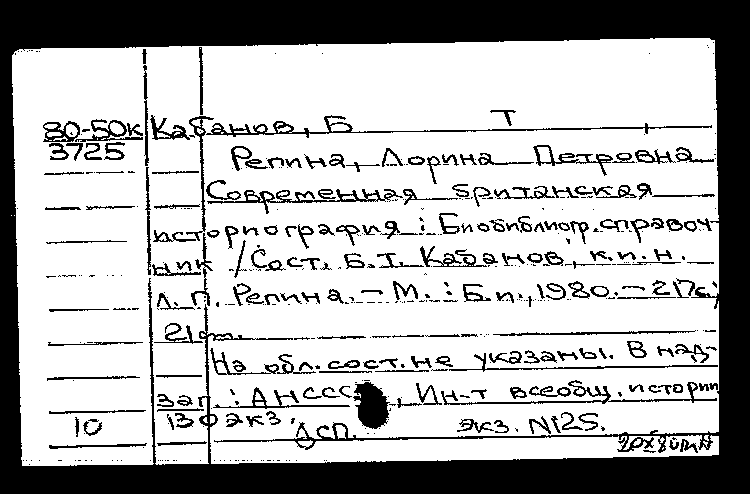 80-50к Кабанов, Б Т
3725 Репина, Лорина Петровна
Современная британская
историография : Биобиблиогр. справоч-
ник / Сост. Б.Т. Кабанов, к.и.н.
Л. П. Репина. – М. : Б.и., 1980. – 217с.;
21см.
На обл. сост. не указаны. В над-
заг. : АН СССР, Ин-т всеобщ. истории
10 130 экз.
ДСП. экз. №125.